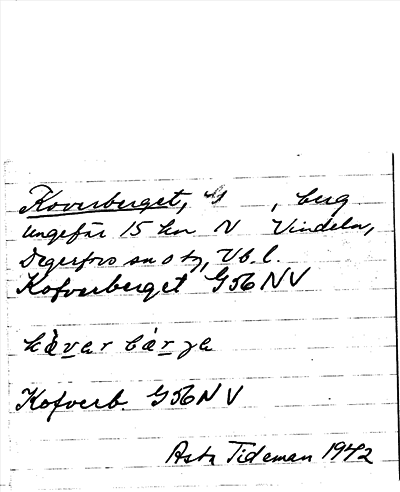 Koverberget, berg
ungefär 15 km N Vindeln,
Degerfors sn o tg, Vb. l.
Kofverberget G56NV
kåvar bärga
Kofverb. G56NV
Asta Tideman 1942